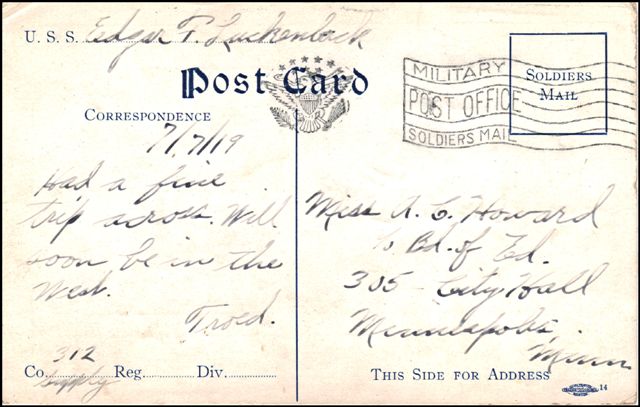 U. S. S. Edgar F. Luckenback
Post Card
MILITARY
POST OFFICE
SOLDIERS MAIL
SOLDIERS
MAIL
CORRESPONDENCE
7/7/19
Had a fine
trip across. Will
soon be in the
West.
Troed.
Co. 312 Reg. Div.
Supply
Miss A. C. Howard
c/o Bd. of Ed.
305 City Hall
Minneapolis.
Minn
THIS SIDE FOR ADDRESS
14